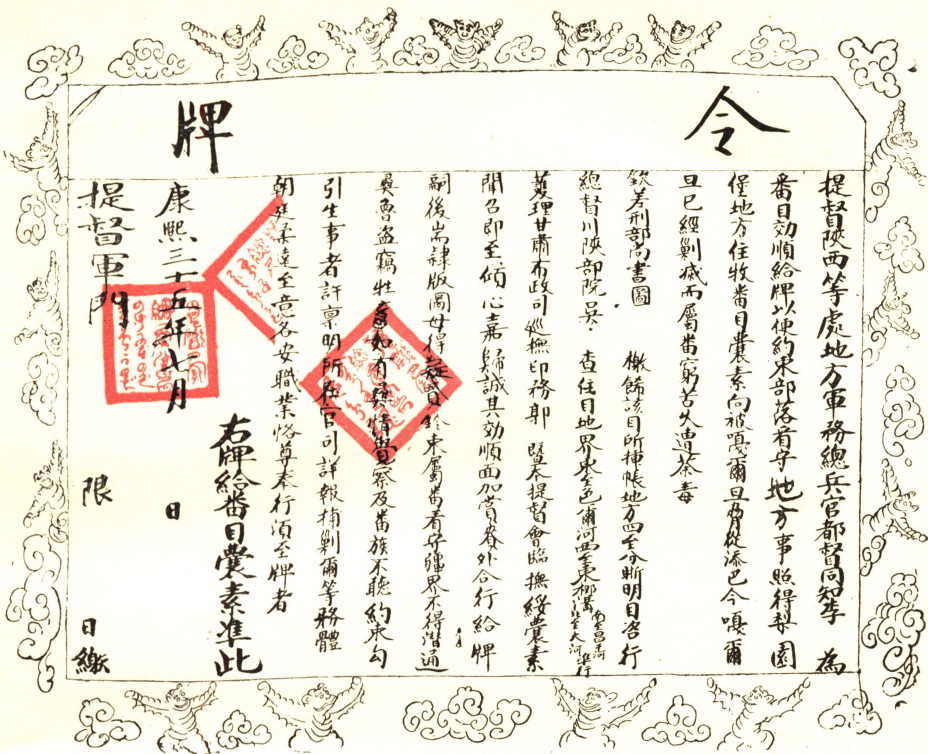 令牌
提督陝西等處地方軍務總兵官都督同知李 為
番目効順給牌以便約束部落看守地方事照得梨園
堡地方住牧番目囊素向被嘎爾旦脅從添巴今嘎爾
旦已經剿滅而屬番窮苦久遭荼毒
欽差刑部尚書圖 檄飭該目所插帳地方四至分晰明白咨行
總督川陝部院吳 查住目地界東至邑爾河西至東柳溝
兼理甘肅布政司巡撫印務郎 暨本提督會臨撫綏囊素
聞召即至傾心嘉歸誠其効順面加賞賚外合行給牌
嗣後耑隸版圖毋得 貳 束屬番看守疆界不得潛通
彝魯盜竊牲畜如有異情覺察及番族不聽約束勾
引生事者許稟明所在官司詳報捕剿爾等務體
朝廷柔遠至意各安職業恪尊奉行須至牌者
右牌給番目囊素准此
康熙三十五年七月 日
提督軍門 限 日繳